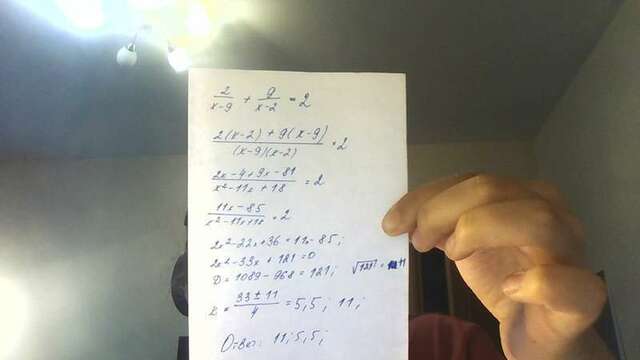 2/(x-9) + 9/(x-2) = 2
(2(x-2) + 9(x-9))/((x-9)(x-2)) = 2
(2x-4+9x-81)/(x²-11x+18) = 2
(11x-85)/(x²-11x+18) = 2
2x²-22x+36=11x-85;
2x²-33x+121=0
D=1089-968=121; √121=11
x = (33±11)/4 = 5,5; 11;
Ответ: 11; 5,5;